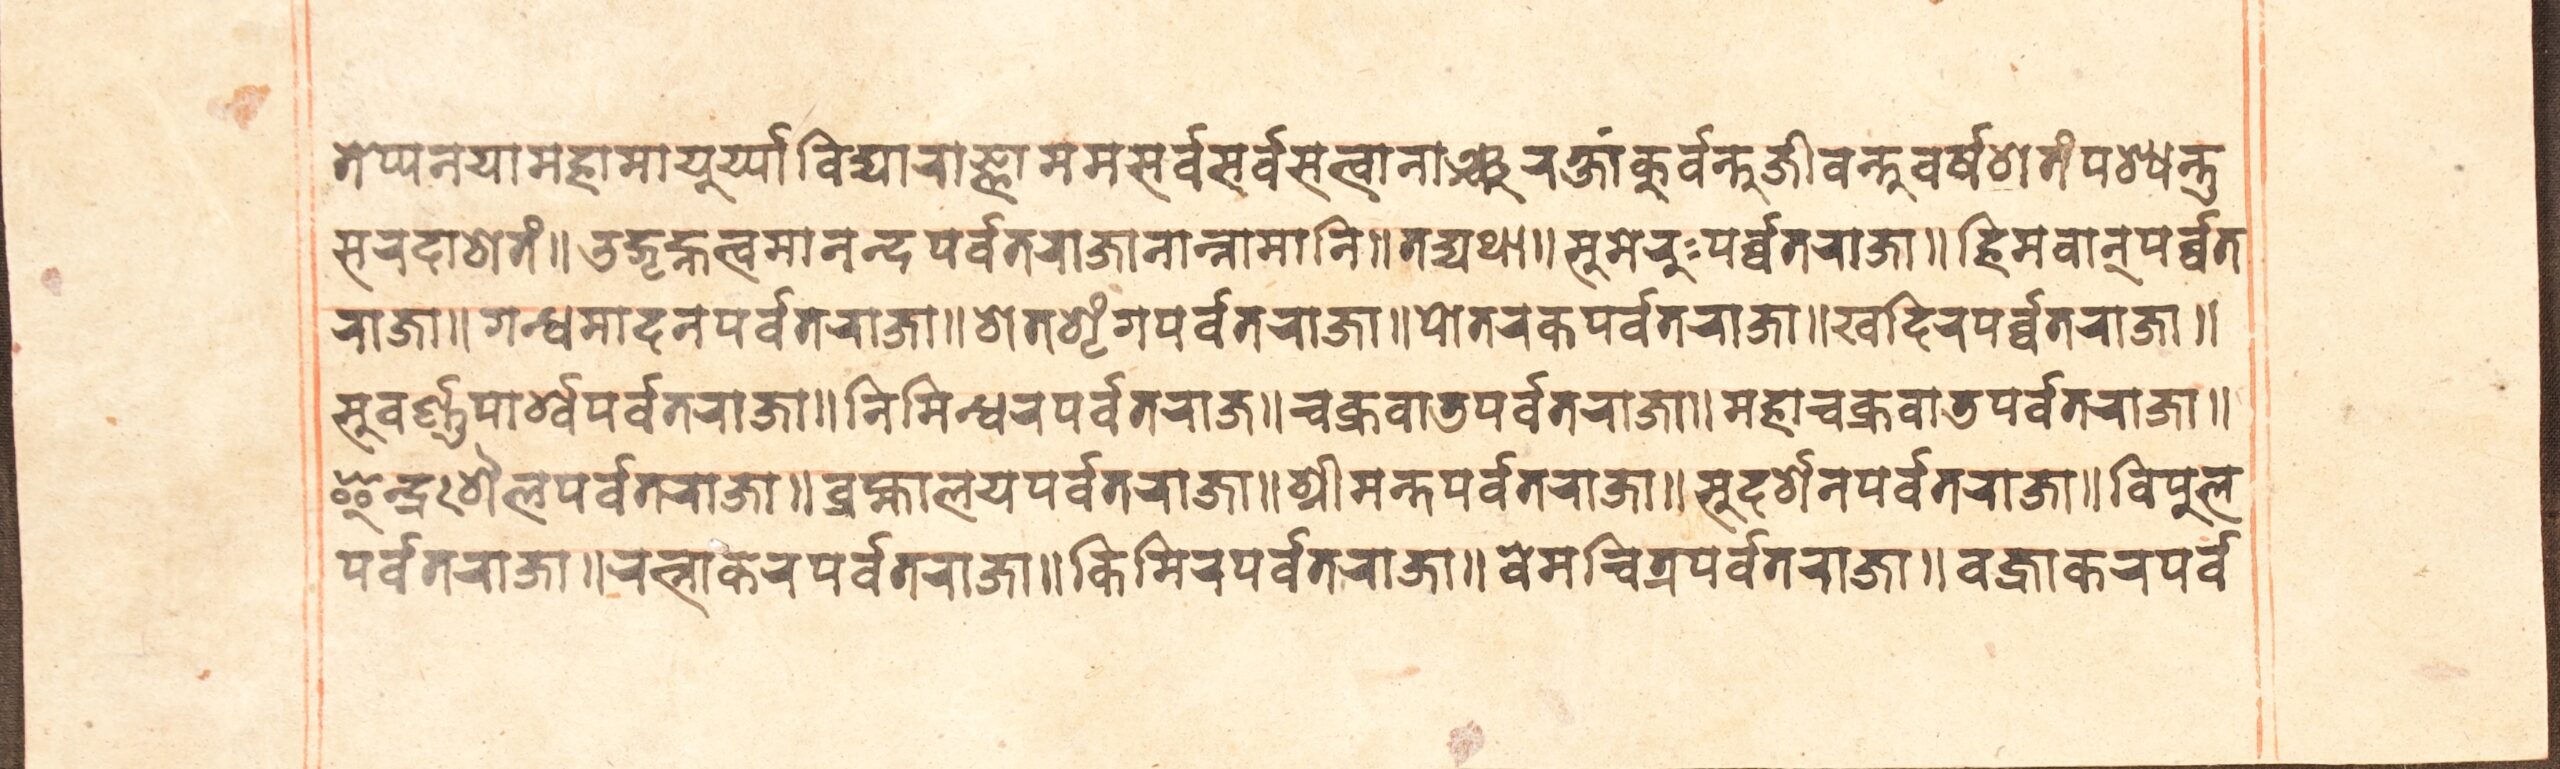 तेप्यनयामहामायुर्य्याविद्याराज्ञाममसर्वसर्वसत्वानाञ्चरक्षांकुर्वन्तुजीवन्तुवर्षशतंपश्यन्तु
सरदाशतं॥उद्गृह्नत्वमानन्दपर्वतराजानान्नामानि॥तद्यथा॥सुमेरुःपर्व्वतराजा॥हिमवान्पर्व्वत
राजा॥गन्धमादनपर्वतराजा॥शतशृंगपर्वतराजा॥पोतरकपर्वतराजा॥खदिरपर्व्वतराजा॥
सुवर्ण्णपार्श्वपर्वतराजा॥निमिन्धरपर्वतराज॥चक्रवाडपर्वतराजा॥महाचक्रवाडपर्वतराजा॥
इन्द्रःशैलपर्वतराजा॥ब्रह्मालयपर्वतराजा॥श्रीमन्तपर्वतराजा॥सुदर्शनपर्वतराजा॥विपुल
पर्वतराजा॥रत्नाकरपर्वतराजा॥किमिरपर्वतराजा॥वेमचित्रपर्वतराजा॥वज्राकरपर्व